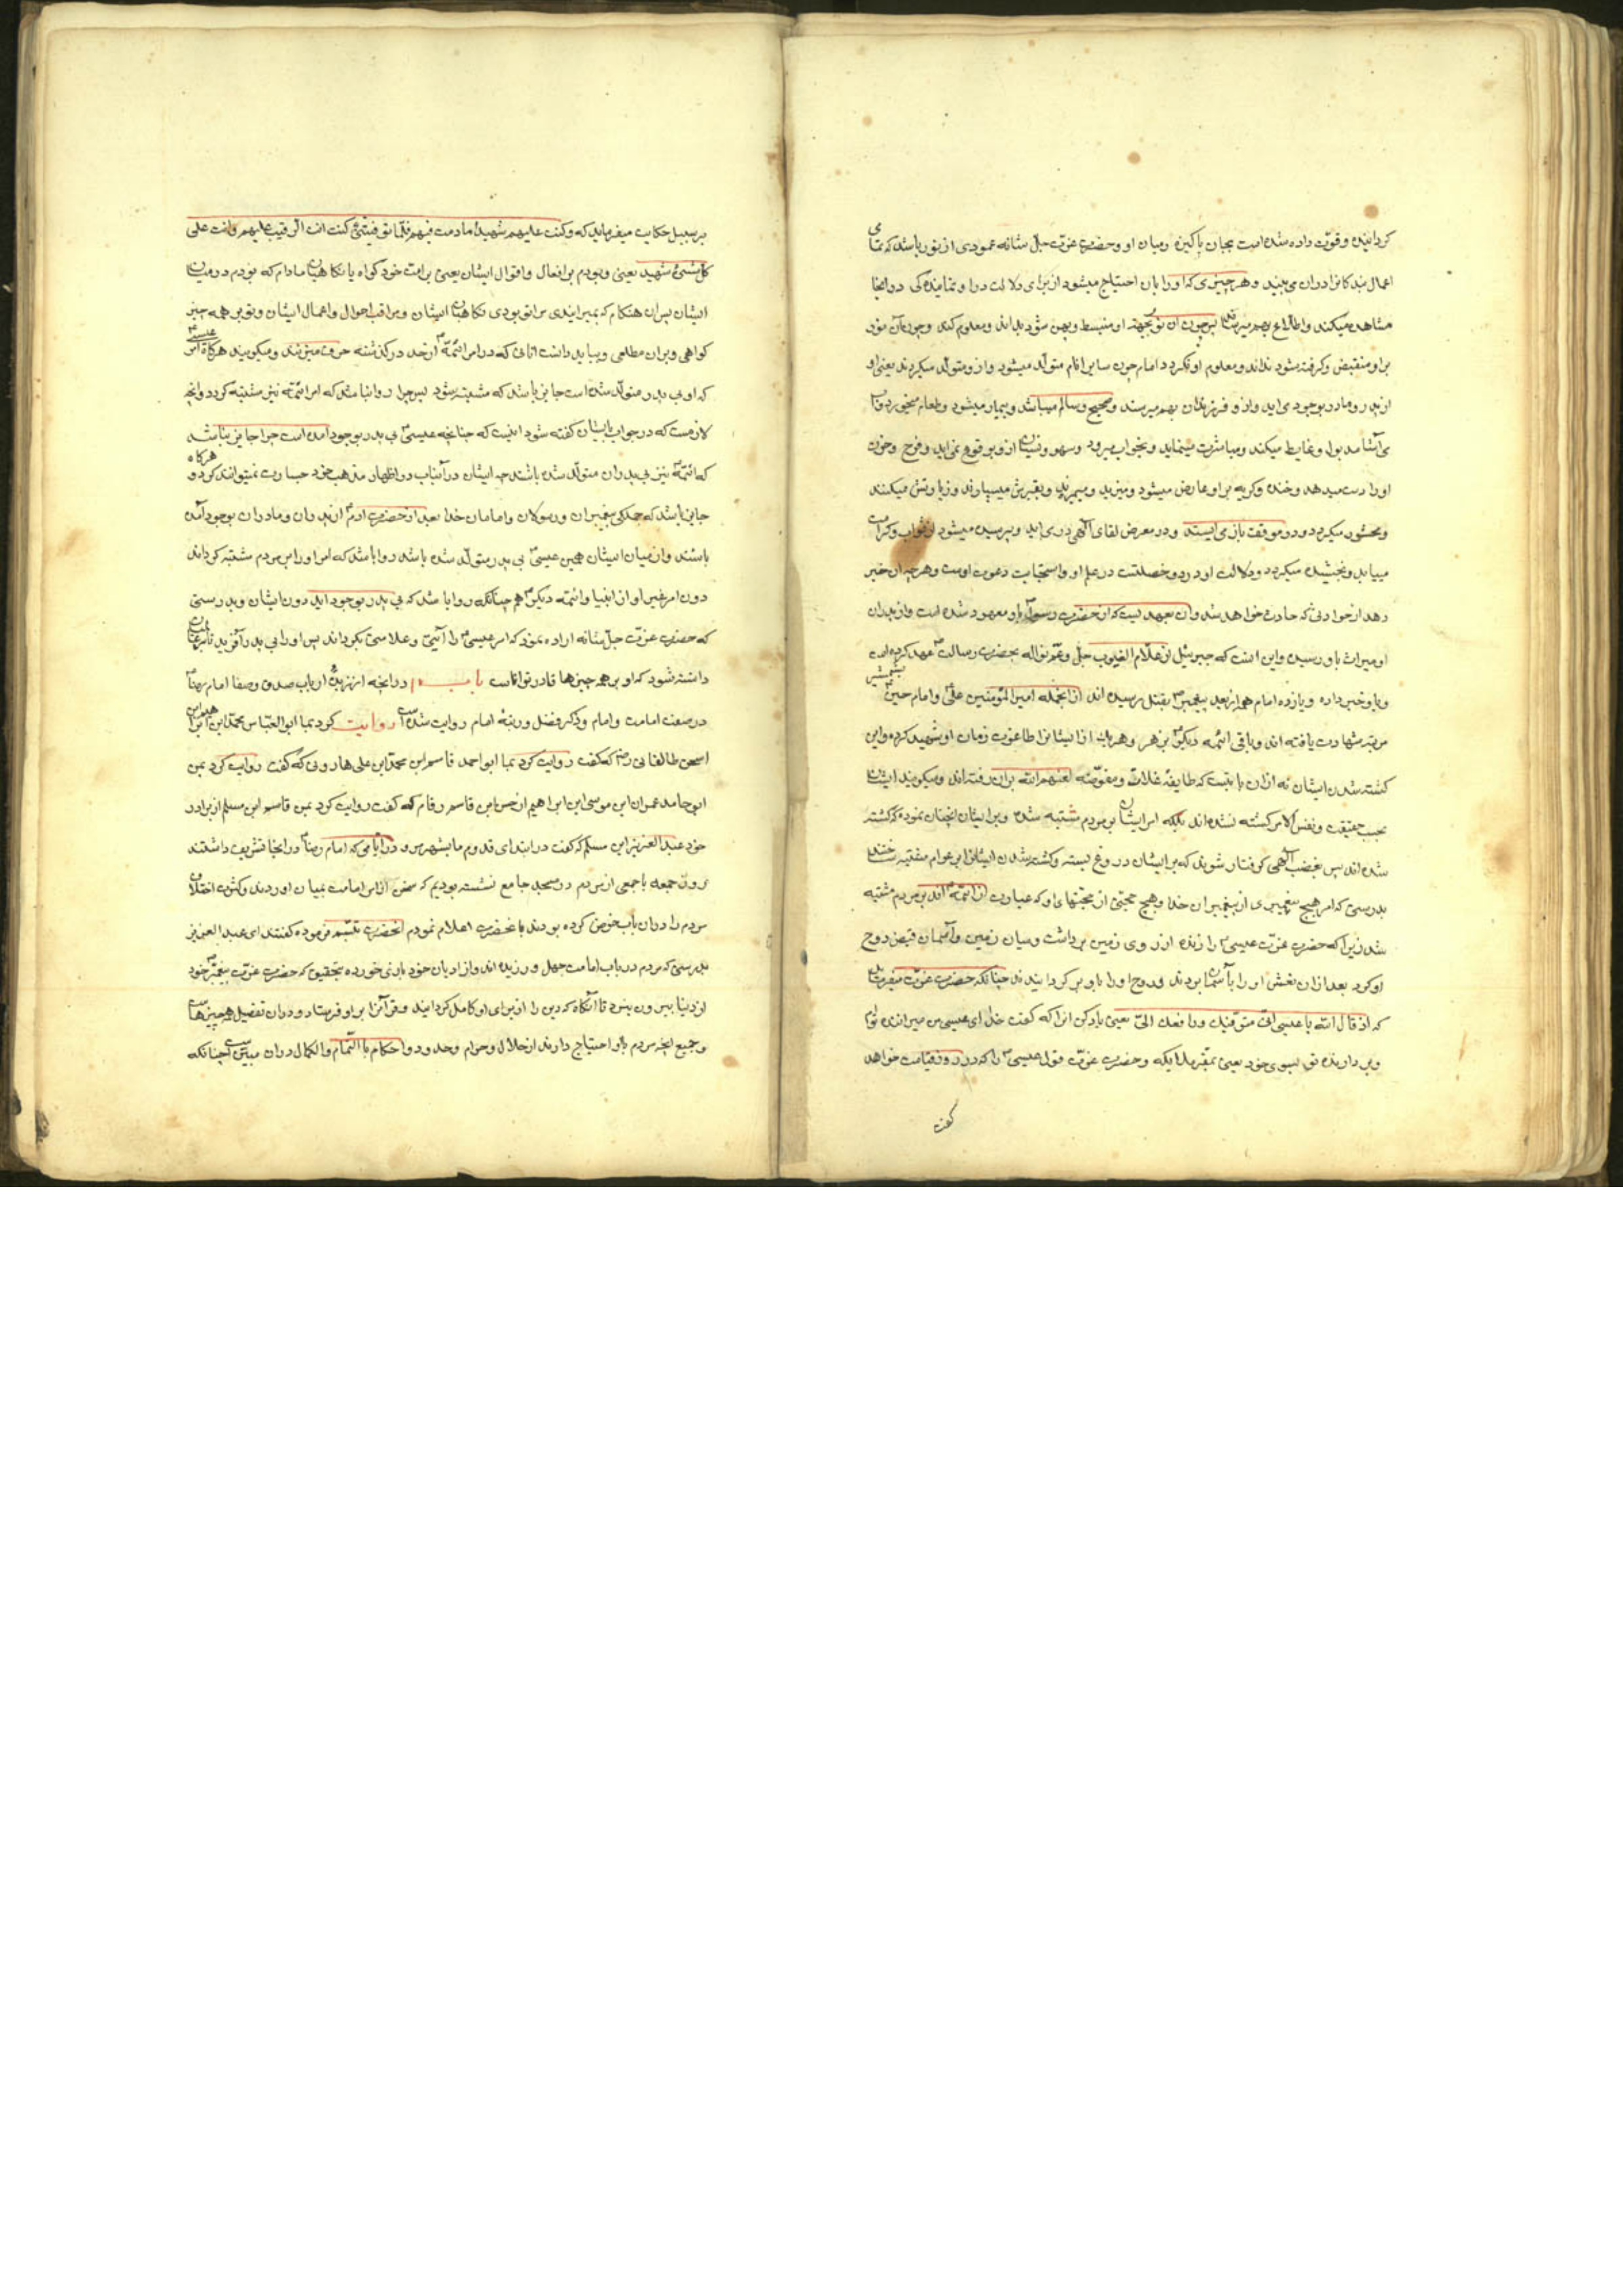 کردانیده و قوّت داده شده است بجان پاکیزه و میان او و حضرت عزّت جلّ شانه عمودی از نور باشد که تمامی
اعمال بندکانرا در ان می بیند و هر چیزی که او را بان احتیاج میشود از برای دلالت در او نماینده کی در انجا
مشاهده میکند و اطّلاع بهم میرساند پس چون ان نور بجهة او منبسط و پهن شود بداند و معلوم کند و چون آن نور
بر او منقبض و کرفته شود نداند و معلوم او نکردد امام چون سایر انام متولّد میشود و از و متولّد میکردند یعنی او
از پدر و مادر بوجود می اید و از و فرزندان بهم میرسند و صحیح و سالم میباشد و بیمار میشود و طعام میخورد و آب
می آشامد بول و غایط میکند و مباشرت مینماید و بخواب میرود و سهو و نسیان ازو بوقوع نمی اید و فرح و حزن
او را دست میدهد و خنده و کریه بر او عارض میشود و میزید و میمیرد و بقبرش میسپارند و زیارتش میکنند
و محشور میکردد و در موقف باز می ایستد و در معرض لقای آلهی در می اید و پرسیده میشود از ثواب و کرامت
مییابد و بخشیده میکردد و دلالت او در دو خصلتست در علم او و استجابت دعوت اوست و هر چه ان خبر
دهد از حوادثی که حادث خواهد شد و ان بعهدیست که از حضرت رسول باو معهود شده است و از پدران
او میراث باو رسیده و این انست که جبرئیل از علّام الغیوب جلّ و عمّ نواله بحضرت رسالت عهد کرده است
و باو خبر داده و یازده امام هم از بعد پیغمبر بقتل رسیده اند از انجمله امیر المؤمنین علی و امام حسین بشمشیر
مرتبه شهادت یافته اند و باقی ائمّه دیکر بزهر و هر یک از ایشانرا طاغوت زمان او شهید کرده و این
کشته شدن ایشان نه ازان بابتست که طایفهٔ غلات و مفوّضه لعنهم الله بران رفته اند و میکویند ایشان
بحسب حقیقت و نفس الامر کشته نشده اند بلکه امر ایشان بر مردم مشتبه شده و بر ایشان انچنان نموده که کشته
شده اند پس بغضب آلهی کرفتار شوند که بر ایشان دروغ بسته و کشته شدن ایشانرا بر عوام مشتبه ساختند
بدرستی که امر هیچ پیغمبری از پیغمبران خدا و هیچ حجّتی از حجّتهای او که عبارت از ائمّه اند بر مردم مشتبه
شد زیرا که حضرت عزّت عیسی را زنده از روی زمین برداشت و میان زمین و آسمان قبض روح
او کرد بعد ازان نعش او را باسمان بردند و روح او را باو برکردانیدند چنانکه حضرت عزّت میفرماید
که اذ قال الله یا عیسی انّی متوفّیک و رافعک الیّ یعنی یاد کن انرا که کفت خدا ای عیسی من میراننده توام
و بر دارنده تو بسوی خود یعنی بمقرّ ملایکه و حضرت عزّت قول عیسی را که در روز قیامت خواهد
کفت
بر سبیل حکایت میفرماید که و کنت علیهم شهیدًا مادمت فیهم فلمّا توفّیتنی کنت انت الرّقیب علیهم و انت علی
کلّ شیءٍ شهید یعنی و بودم بر افعال و اقوال ایشان یعنی بر امت خود کواه یا نکاهبان مادام که بودم در میان
ایشان پس ان هنکام که بمیرانیدی مرا تو بودی نکاهبان ایشان و مراقب احوال و اعمال ایشان و تو بر همه چیز
کواهی و بران مطلعی و بباید دانست انانی که در امر ائمّه از حد درکذشته حرف میزنند و میکویند هرکاه امر عیسی
که او بی پدر متولّد شده است جایز باشد که مشتبه شود پس چرا روا نباشد که امر ائمّه نیز مشتبه کردد و انچه
لازمست که در جواب ایشان کفته شود اینست که چنانچه عیسی بی پدر بوجود امده است چرا جایز نباشد
که ائمّه نیز بی پدران متولّد شده باشند چه ایشان در آن باب در اظهار مذهب خود جسارت نمیتوانند کرد و هرکاه
جایز باشد که جملکی پیغمبران و رسولان و امامان خدا بعد از حضرت ادم از پدران و مادران بوجود آمده
باشند و از میان ایشان همین عیسی بی پدر متولّد شده باشد روا باشد که امر او را بر مردم مشتبه کرداند
دون امر غیر او از انبیا و ائمّه دیکر هم چنانکه روا باشد که بی پدر بوجود اید دون ایشان و بدرستی
که حضرت عزّت جلّ شانه اراده نمود که امر عیسی را آیتی و علامتی بکرداند پس او را بی پدر آفرید تا بر عالمیان
دانسته شود که او بر همه چیزها قادر و تواناست باب بیستم در انچه از زبدهٔ ارباب صدق و صفا امام رضا
در صفت امامت و امام و ذکر فضل و رتبهٔ امام روایت شده است روایت کرد بما ابو العبّاس محمّد ابن ابراهیم ابن
اسحق طالقانی رض که کفت روایت کرد بما ابو احمد قاسم ابن محمّد ابن علی هارونی که کفت روایت کرد بمن
ابو حامد عمران ابن موسی ابن ابراهیم از حسن ابن قاسم رقام که کفت روایت کرد بمن قاسم ابن مسلم از برادر
خود عبد العزیز ابن مسلم که کفت در ابتدای قدوم ما بشهر مرو در ایّامی که امام رضا در انجا تشریف داشتند
روز جمعه با جمعی از مردم در مسجد جامع نشسته بودیم که سخن از امر امامت بمیان اوردند و کثرت اختلاف
مردم را دران باب خوض کرده بودند بانحضرت اعلام نمودم انحضرت تبسّم فرموده کفتند ای عبد العزیز
بدرستی که مردم در باب امامت جهل ورزیده اند و از ادیان خود بازی خورده بتحقیق که حضرت عزّت پیغمبر خود
از دنیا بیرون نبرد تا انکاه که دین را از برای او کامل کردانید و قرآنرا بر او فرستاد و دران تفضیل همه چیزهاست
و جمیع انچه مردم باو احتیاج دارند از حلال و حرام و حدود و احکام با التّمام و الکمال دران مبیّن است چنانکه